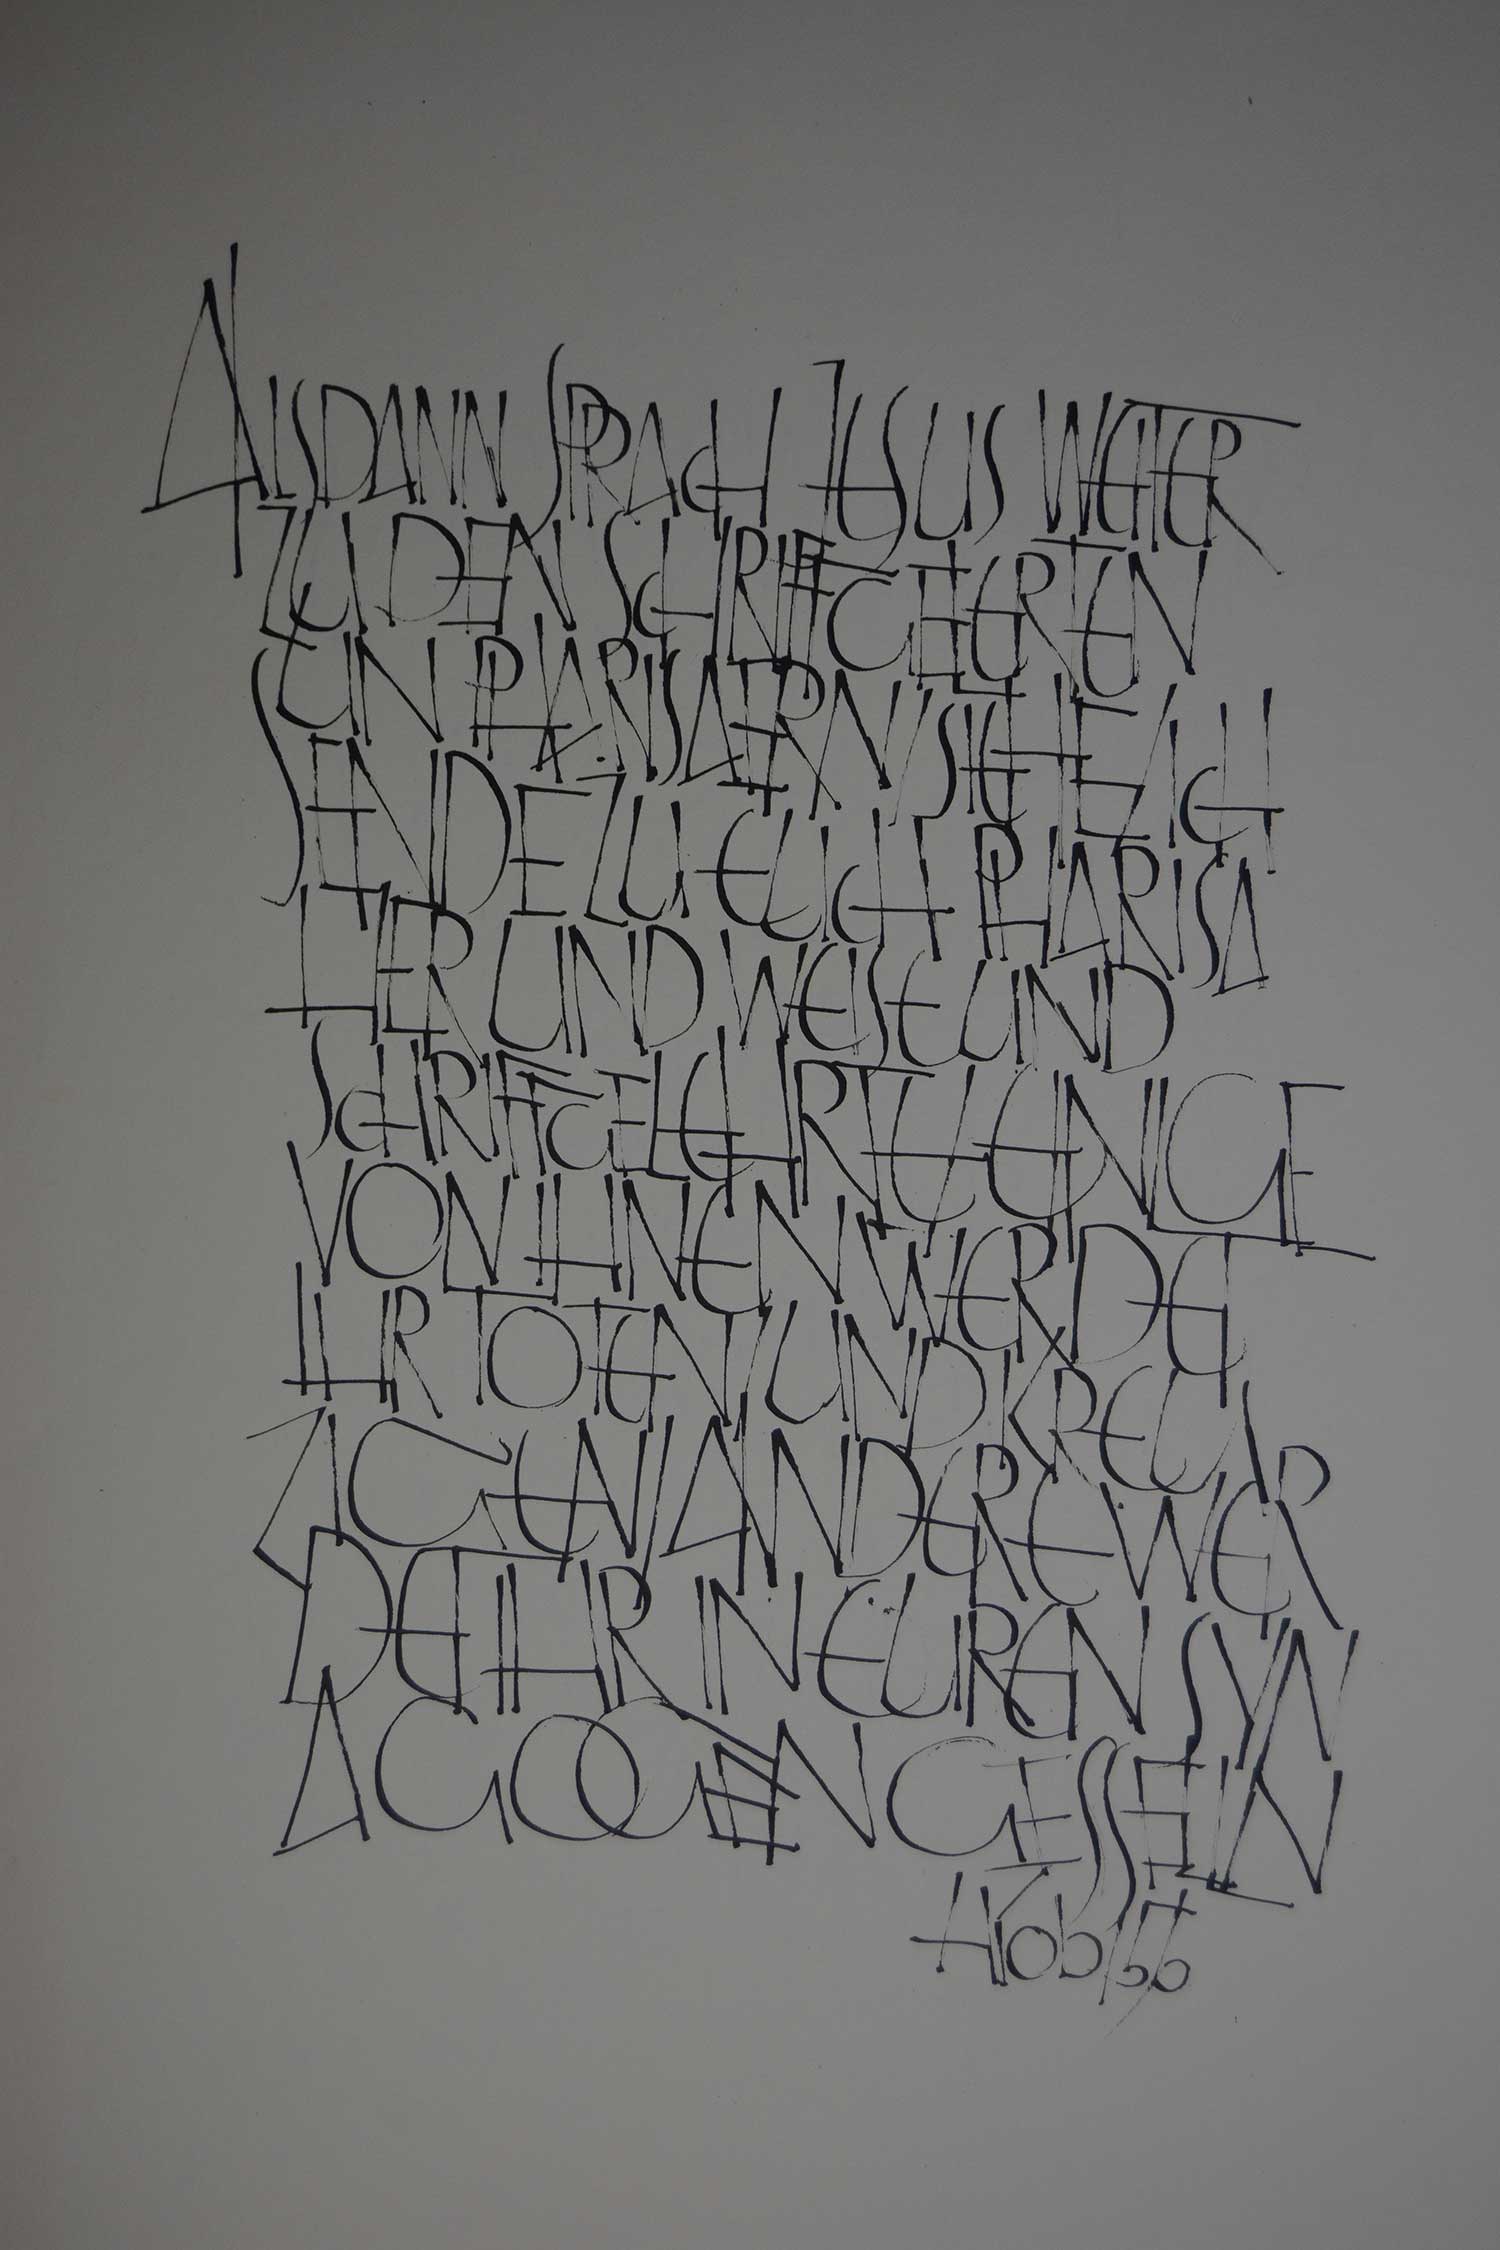 ALSDANN SPRACH JESUS WEITER
ZU DEN SCHRIFTGELEHRTEN
UN PHARISAERN / SIEHE / ICH
SENDE ZU EUCH PHARISA
HER UND WEISE UND
SCHRIFTGELEHRTE / EINIGE
VON IHNEN WERDET
IHR TOTEN / UND KREU
ZIGEN / ANDERE WER
DET IHR IN EUREN SYN
AGOGEN GESSELN